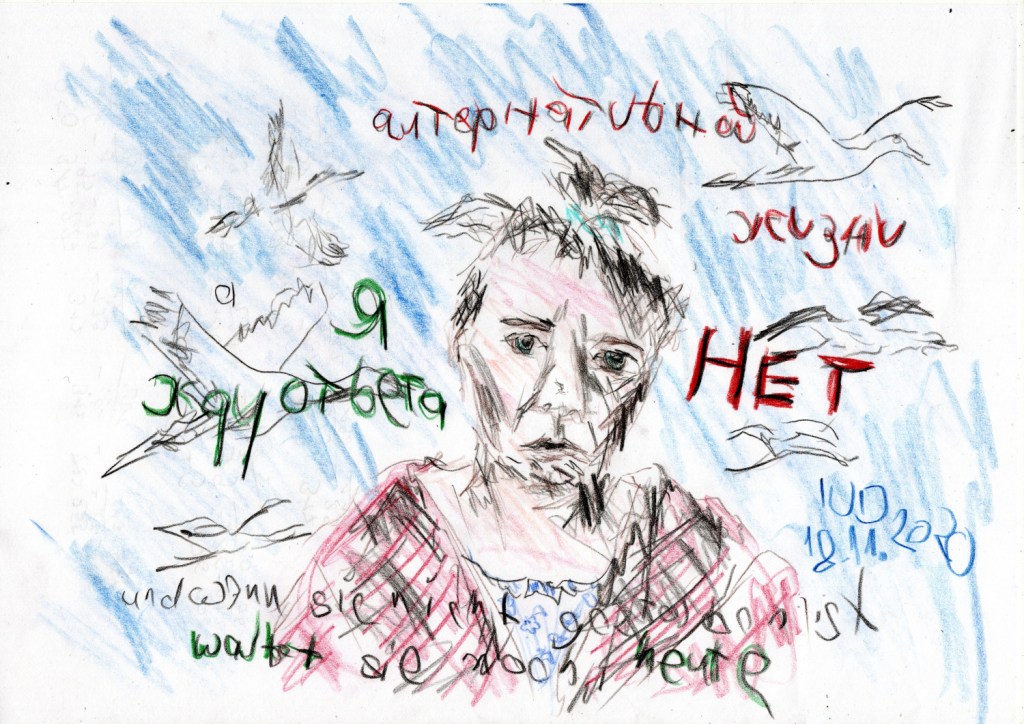 алтернативной
жизни
Я
жду ответа
НЕТ
IUD
18.11.2020
und wenn sie nicht gestorben ist
wartet sie noch heute